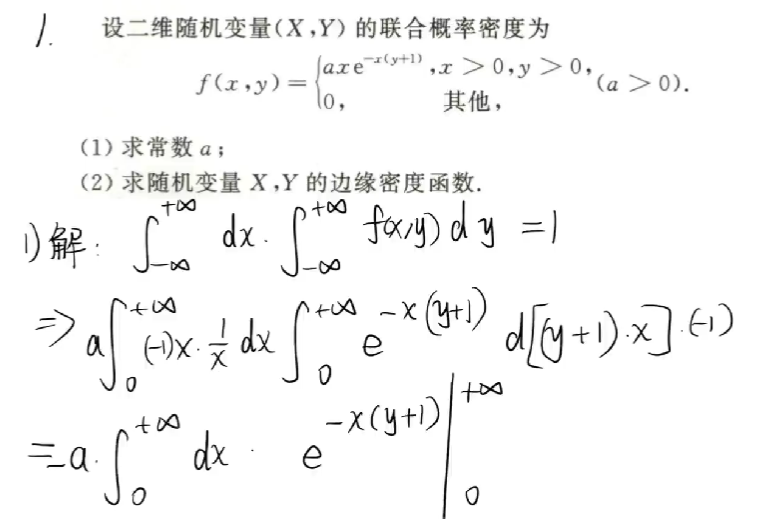 1. 设二维随机变量(X,Y)的联合概率密度为
f(x,y)={axe^{-x(y+1)},x>0,y>0,
0, 其他,
(a>0).
(1)求常数a;
(2)求随机变量X,Y的边缘密度函数.
1)解: ∫_{-∞}^{+∞} dx·∫_{-∞}^{+∞} f(x,y)dy =1
⇒ a∫_0^{+∞} (-1)x·\frac{1}{x} dx ∫_0^{+∞} e^{-x(y+1)} d[(y+1)·x]·(-1)
=-a·∫_0^{+∞} dx· e^{-x(y+1)}|_0^{+∞}